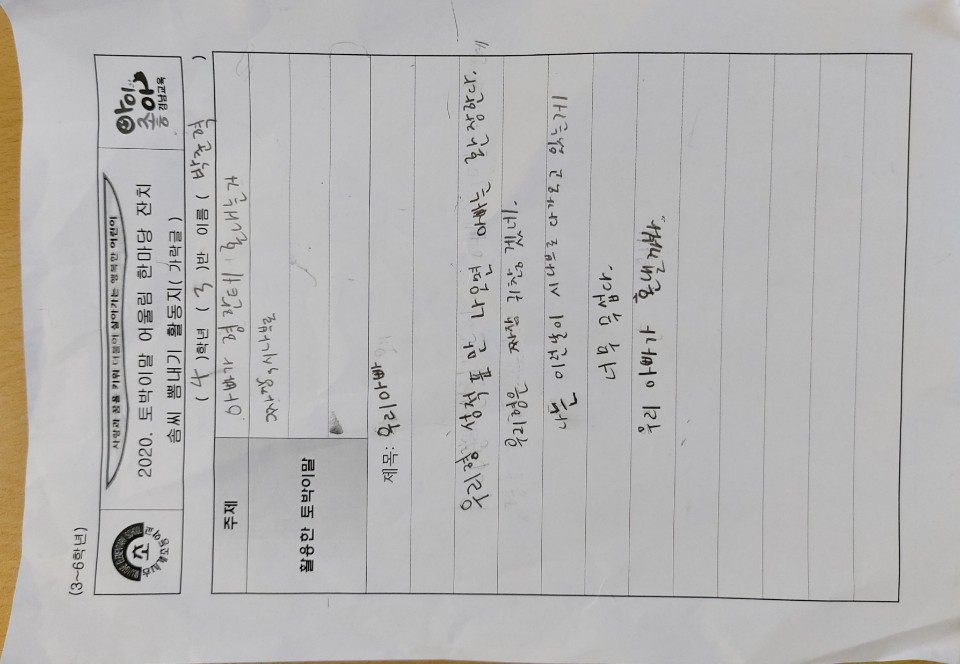 (3~6학년)
사랑과 꿈을 키워 더불어 살아가는 행복한 어린이
2020. 토박이말 어울림 한마당 잔치
솜씨 뽐내기 활동지( 가락글 )
아이좋아
경남교육
( 4 )학년 ( 3 )반 이름 ( 박준혁 )
주제 아빠가 형한테 혼내는거
활용한 토박이말 짜장, 시나브로
제목: 우리아빠
우리형 성적표만 나오면 아빠는 환장한다.
우리형은 짜장 귀찮겠네.
나는 이런일이 시나브로 다가오고 있는게
너무 무섭다.
우리 아빠가 혼낼까봐